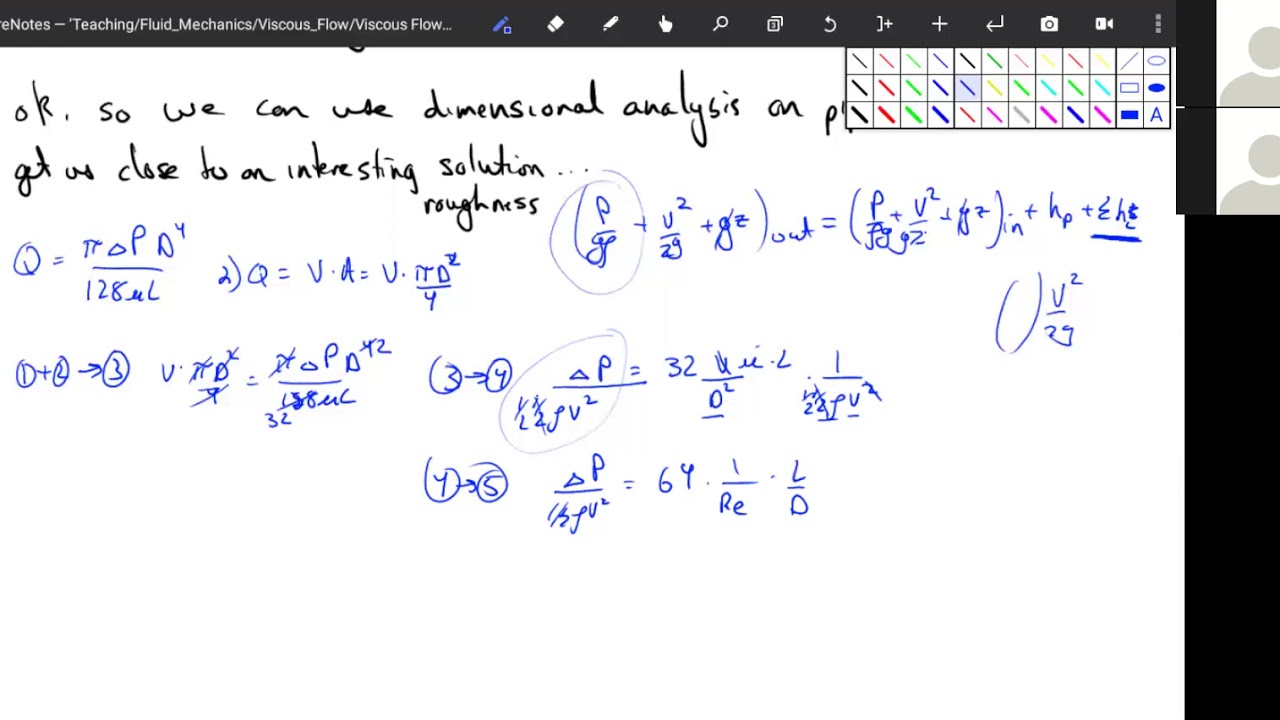 reNotes — 'Teaching/Fluid_Mechanics/Viscous_Flow/Viscous Flow...
A
ok. so we can use dimensional analysis on
get us close to an interesting solution ...
roughness
(P/gρ + V²/2g + gz)out = (P/ρg + V²/g2 + gz)in + hp + Σh
Q = πΔPD⁴/128μL
2) Q = V·A = V·πD²/4
( ) V²/2g
①+② → ③ V·πD²/4 = πΔPD⁴²/128μL 32
(③→④ ΔP/½ρV² = 32 Vμ·L/D² · 1/½ρV²
(④→⑤ ΔP/½ρV² = 64 · 1/Re · L/D